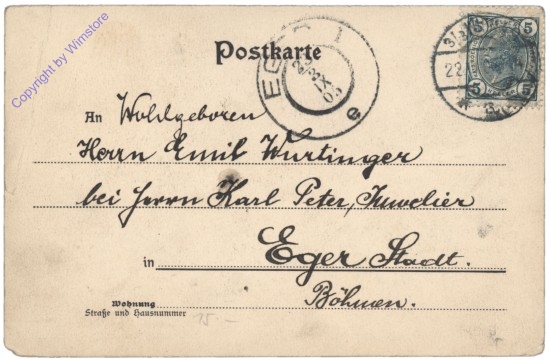 Copyright by Wimstore
Postkarte
5 5
5 5
22
EGER 1
IX
03
e
An Wohlgeboren
Herrn Emil Wurtinger
bei Herrn Karl Peter, Juwelier
in Eger Stadt.
Böhmen.
Wohnung
Straße und Hausnummer
15.-